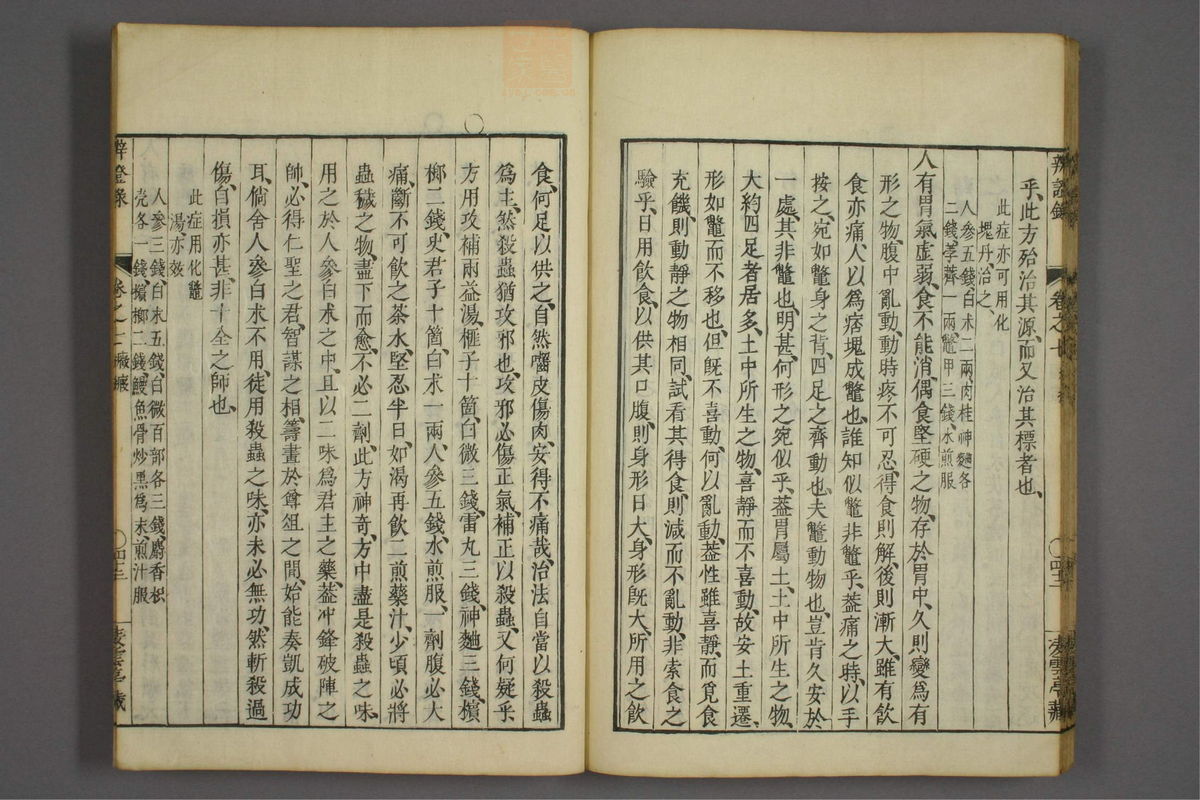 乎、此方殆治其源、而又治其標者也、
此症亦可用化
塊丹治之、
人參五錢、白朮二兩、肉桂神麯各
二錢、荸薺一兩、鼈甲三錢、水煎服
人有胃氣虛弱、食不能消、偶食堅硬之物、存於胃中、久則變爲有
形之物、腹中亂動、動時疼不可忍、得食則解、後則漸大、雖有飲
食亦痛、人以爲痞塊成鼈也、誰知似鼈非鼈乎、葢痛之時、以手
按之、宛如鼈身之背、四足之齊動也、夫鼈動物也、豈肯久安於
一處、其非鼈也明甚、何形之宛似乎、葢胃屬土、土中所生之物、
大約四足者居多、土中所生之物、喜靜而不喜動、故安土重遷、
形如鼈而不移也、但旣不喜動、何以亂動、葢性雖喜靜、而覓食
充饑、則動靜之物相同、試看其得食、則減而不亂動、非索食之
驗乎、日用飲食、以供其口腹、則身形日大、身形旣大、所用之飲
食、何足以供之、自然嚙皮傷肉、安得不痛哉、治法自當以殺蟲
爲主、然殺蟲猶攻邪也、攻邪必傷正氣、補正以殺蟲、又何疑乎、
方用攻補兩益湯、榧子十箇、白薇三錢、雷丸三錢、神麯三錢、檳
榔二錢、史君子十箇、白朮一兩、人參五錢、水煎服、一劑腹必大
痛、斷不可飲之茶水、堅忍半日、如渴再飲二煎藥汁、少頃必將
蟲穢之物、盡下而愈、不必二劑、此方神奇、方中盡是殺蟲之味、
用之於人參白朮之中、且以二味爲君主之藥、葢冲鋒破陣之
帥、必得仁聖之君、智謀之相、籌畫於尊俎之間、始能奏凱成功
耳、倘舍人參白朮不用、徒用殺蟲之味、亦未必無功、然斬殺過
傷、自損亦甚、非十全之師也、
此症用化鼈
湯亦效
人參三錢、白朮五錢、白薇百部各三錢、麝香枳
壳各一錢、檳榔二錢、鰻魚骨炒黑爲末、煎汁服